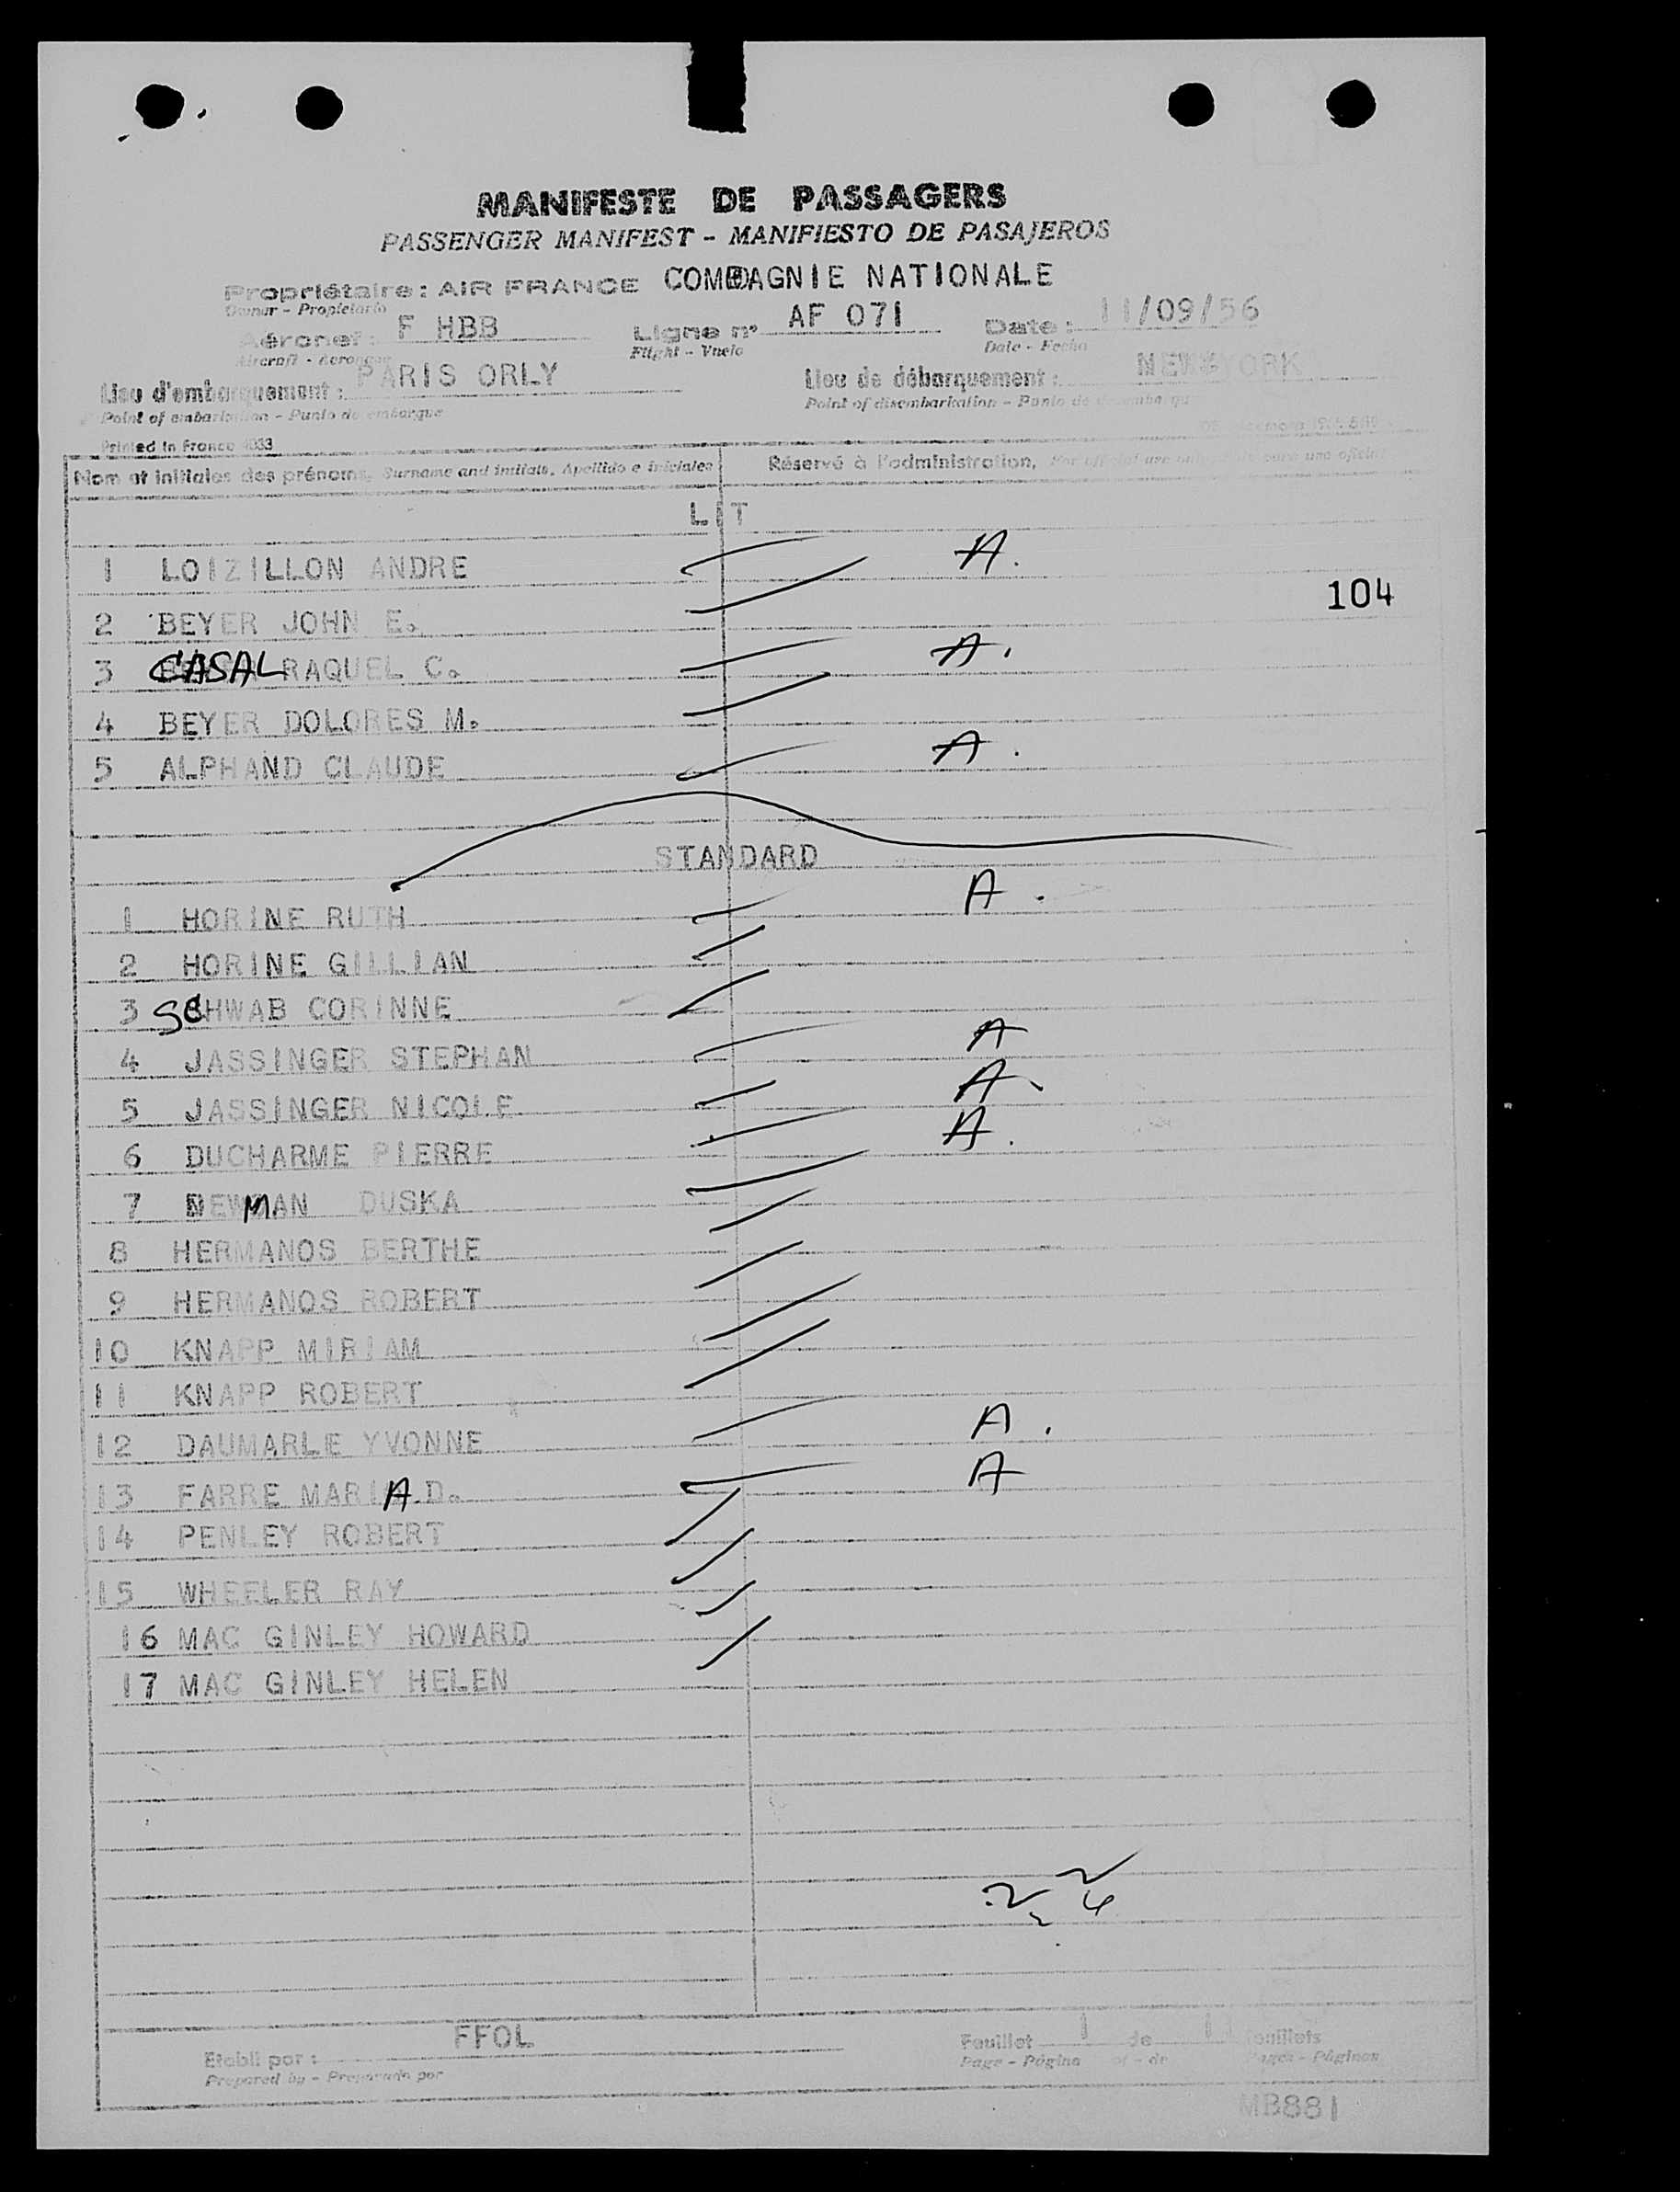 MANIFESTE DE PASSAGERS
PASSENGER MANIFEST - MANIFIESTO DE PASAJEROS
Propriétaire : AIR FRANCE COMPAGNIE NATIONALE
Owner - Propietario
Aéronef : F HBB Ligne n° AF 071 Date : 11/09/56
Aircraft - Aeronave Flight - Vuelo Date - Fecha
Lieu d'embarquement : PARIS ORLY Lieu de débarquement : NEW YORK
Point of embarkation - Punto de embarque Point of disembarkation - Punto de desembarque
Printed in France 4033
Nom et initiales des prénoms, Surname and initials, Apellido e iniciales Réservé à l'administration, For official use only
LIT
1 LOIZILLON ANDRE A.
104
2 BEYER JOHN E.
3 CASAL RAQUEL C. A.
4 BEYER DOLORES M.
5 ALPHAND CLAUDE A.
STANDARD
1 HORINE RUTH A.
2 HORINE GILLIAN
3 SCHWAB CORINNE
4 JASSINGER STEPHAN A
5 JASSINGER NICOLE A
6 DUCHARME PIERRE A.
7 NEWMAN DUSKA
8 HERMANOS BERTHE
9 HERMANOS ROBERT
10 KNAPP MIRIAM
11 KNAPP ROBERT
12 DAUMARLE YVONNE A.
13 FARRE MARIA D. A
14 PENLEY ROBERT
15 WHEELER RAY
16 MAC GINLEY HOWARD
17 MAC GINLEY HELEN
Etabli par : FFOL Feuillet 1 de 1 feuillets
Prepared by - Preparado por Page - Página of - de Pages - Páginas
MB881